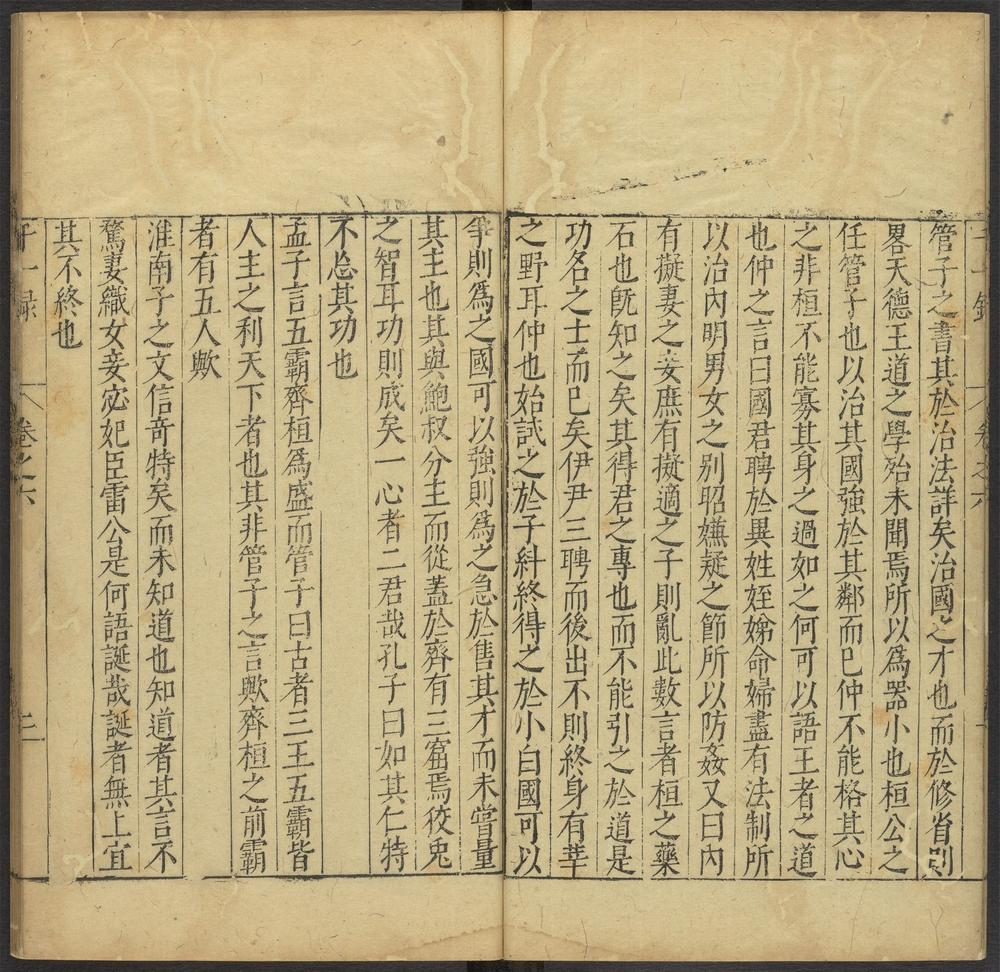 管子之書其於治法詳矣治國之才也而於修省則
畧天德王道之學殆未聞焉所以爲器小也桓公之
任管子也以治其國強於其鄰而已仲不能格其心
之非桓不能寡其身之過如之何可以語王者之道
也仲之言曰國君聘於異姓姪娣命婦盡有法制所
以治內明男女之别昭嫌疑之節所以防姦又曰內
有擬妻之妾庶有擬適之子則亂此數言者桓之藥
石也旣知之矣其得君之專也而不能引之於道是
功名之士而已矣伊尹三聘而後出不則終身有莘
之野耳仲也始試之於子糾終得之於小白國可以
爭則爲之國可以強則爲之急於售其才而未嘗量
其主也其與鮑叔分主而從蓋於齊有三窟焉佼兎
之智耳功則成矣一心者二君哉孔子曰如其仁特
不怹其功也
孟子言五霸齊桓爲盛而管子曰古者三王五霸皆
人主之利天下者也其非管子之言歟齊桓之前霸
者有五人歟
淮南子之文信奇特矣而未知道也知道者其言不
駕妻織女妾宓妃臣雷公是何語誕哉誕者無上宜
其不終也
子一録
卷之六
三